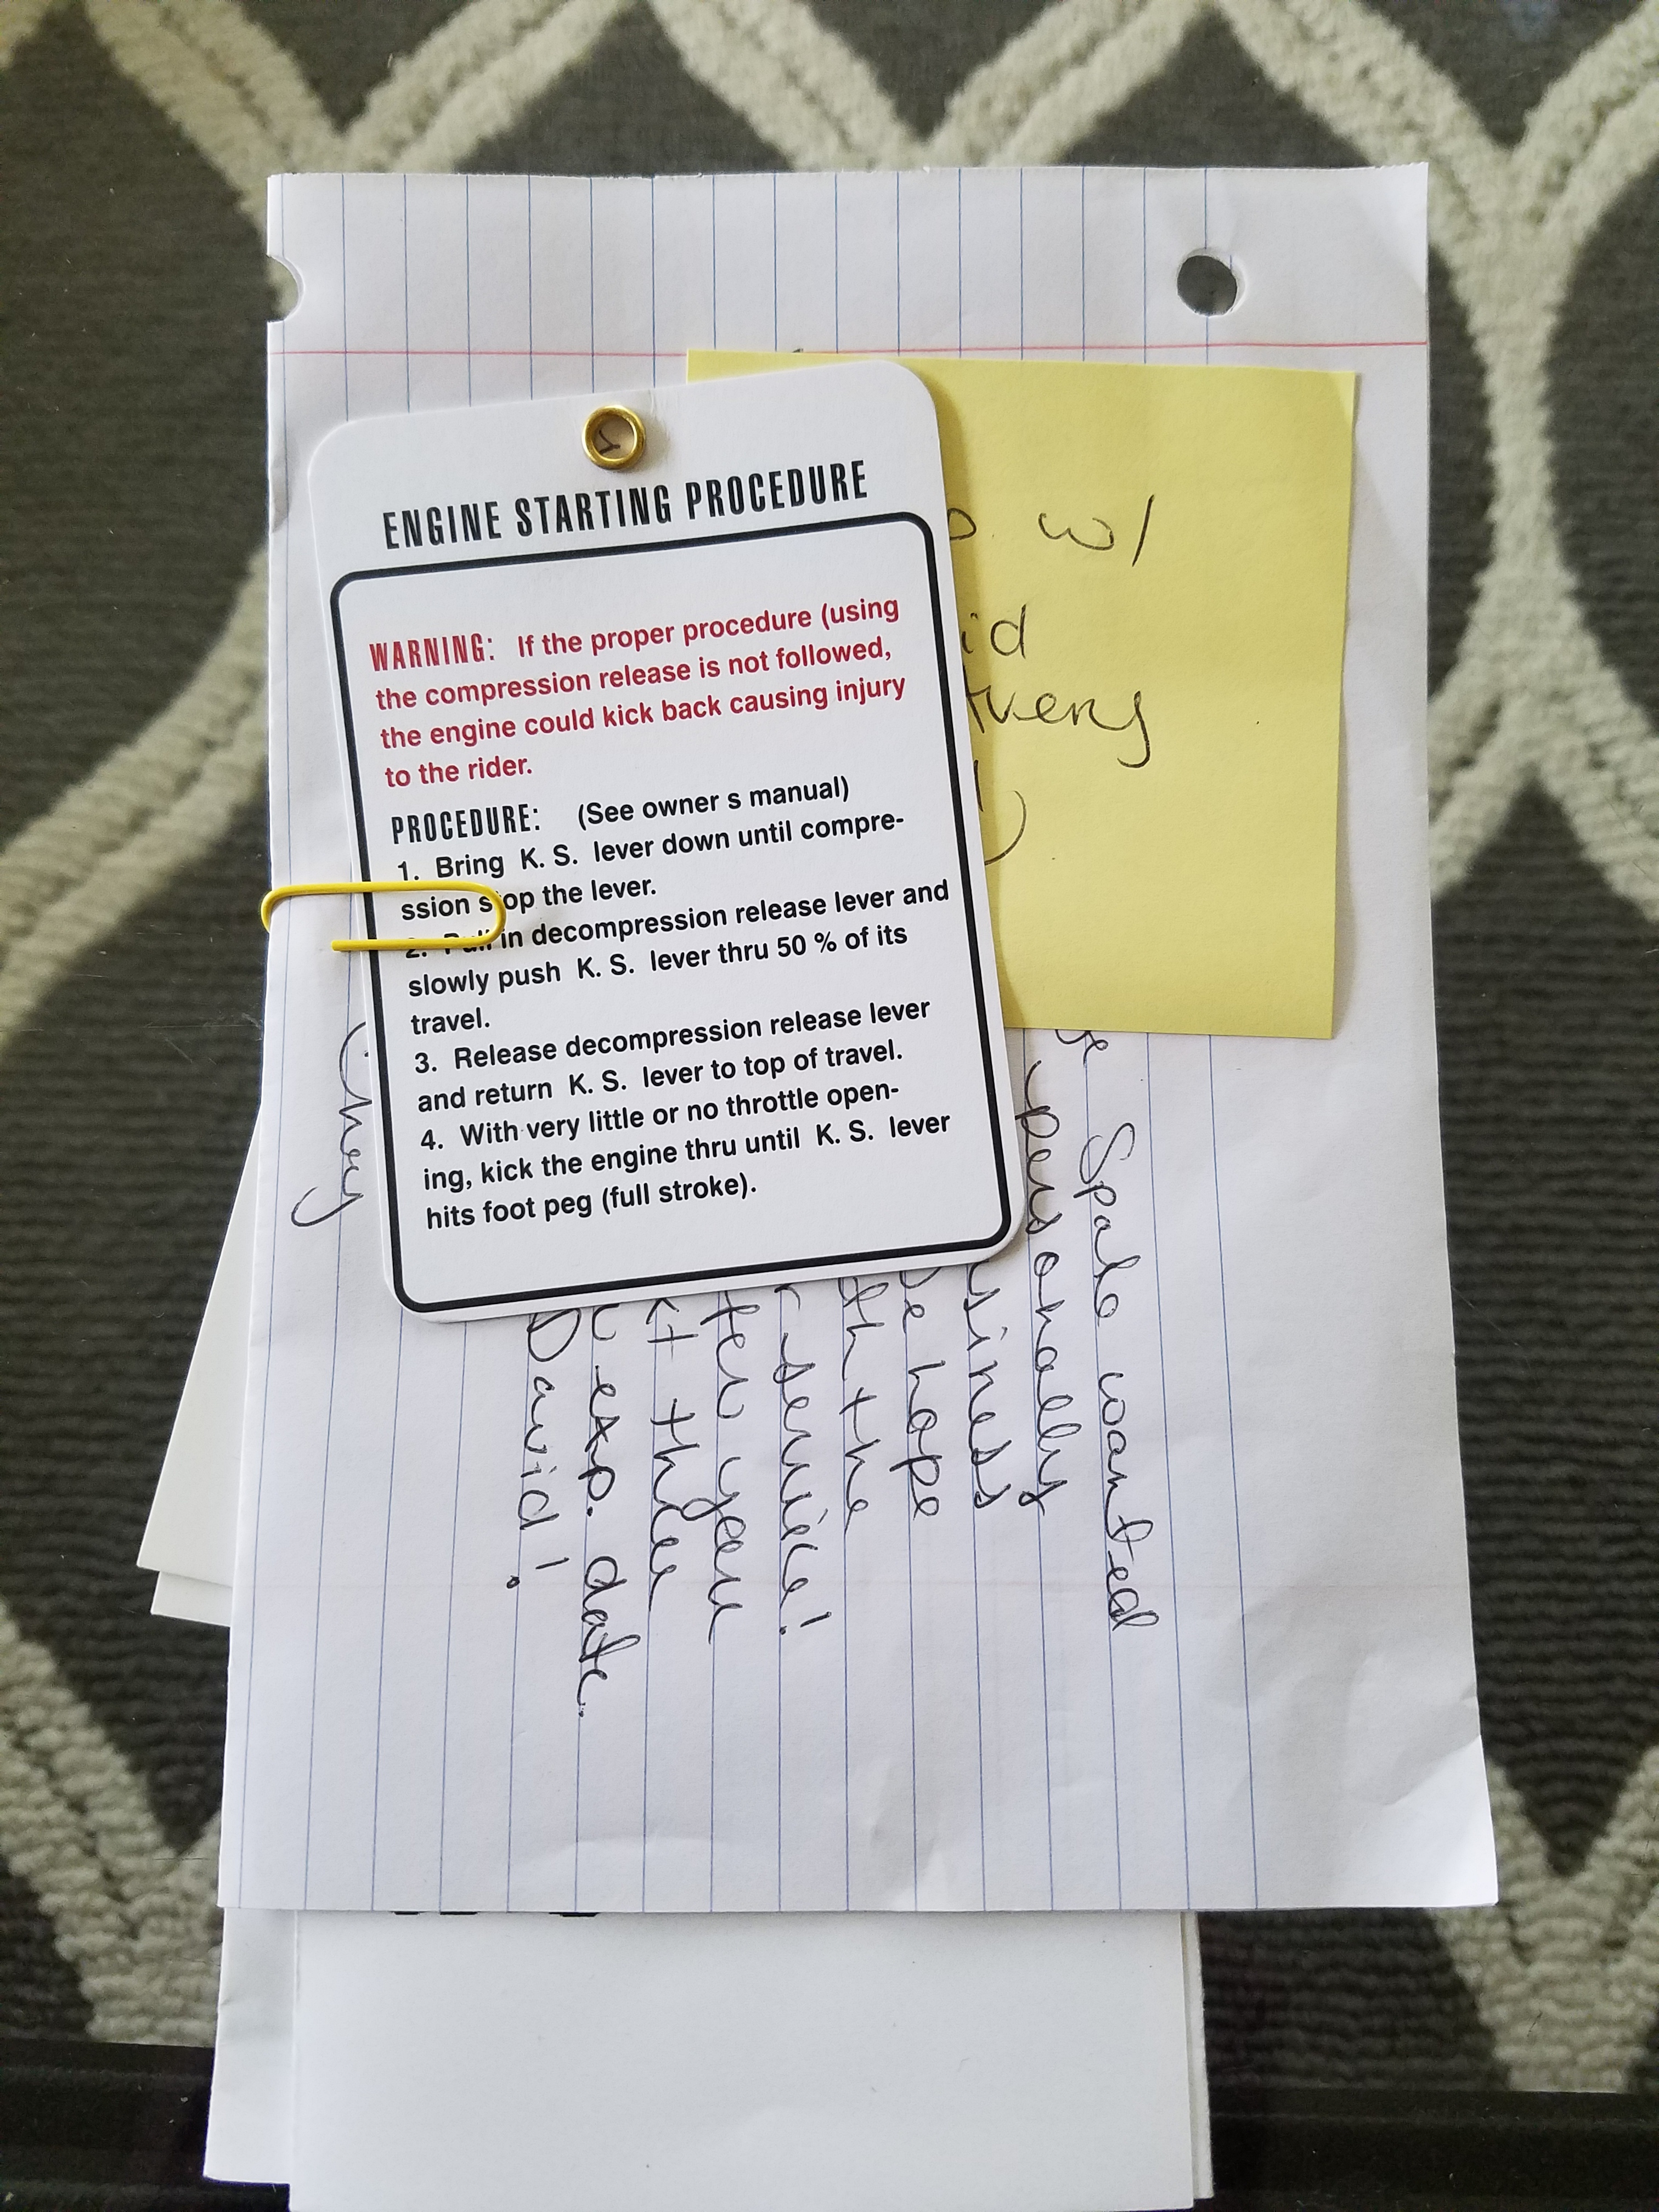 ENGINE STARTING PROCEDURE
WARNING: If the proper procedure (using
the compression release is not followed,
the engine could kick back causing injury
to the rider.
PROCEDURE: (See owner s manual)
1. Bring K. S. lever down until compre-
ssion stop the lever.
2. Pull in decompression release lever and
slowly push K. S. lever thru 50 % of its
travel.
3. Release decompression release lever
and return K. S. lever to top of travel.
4. With very little or no throttle open-
ing, kick the engine thru until K. S. lever
hits foot peg (full stroke).
w/
id
Spalo wanted
personally
usiness
hope
th the
service!
ter you
kt three
exp. date.
David!